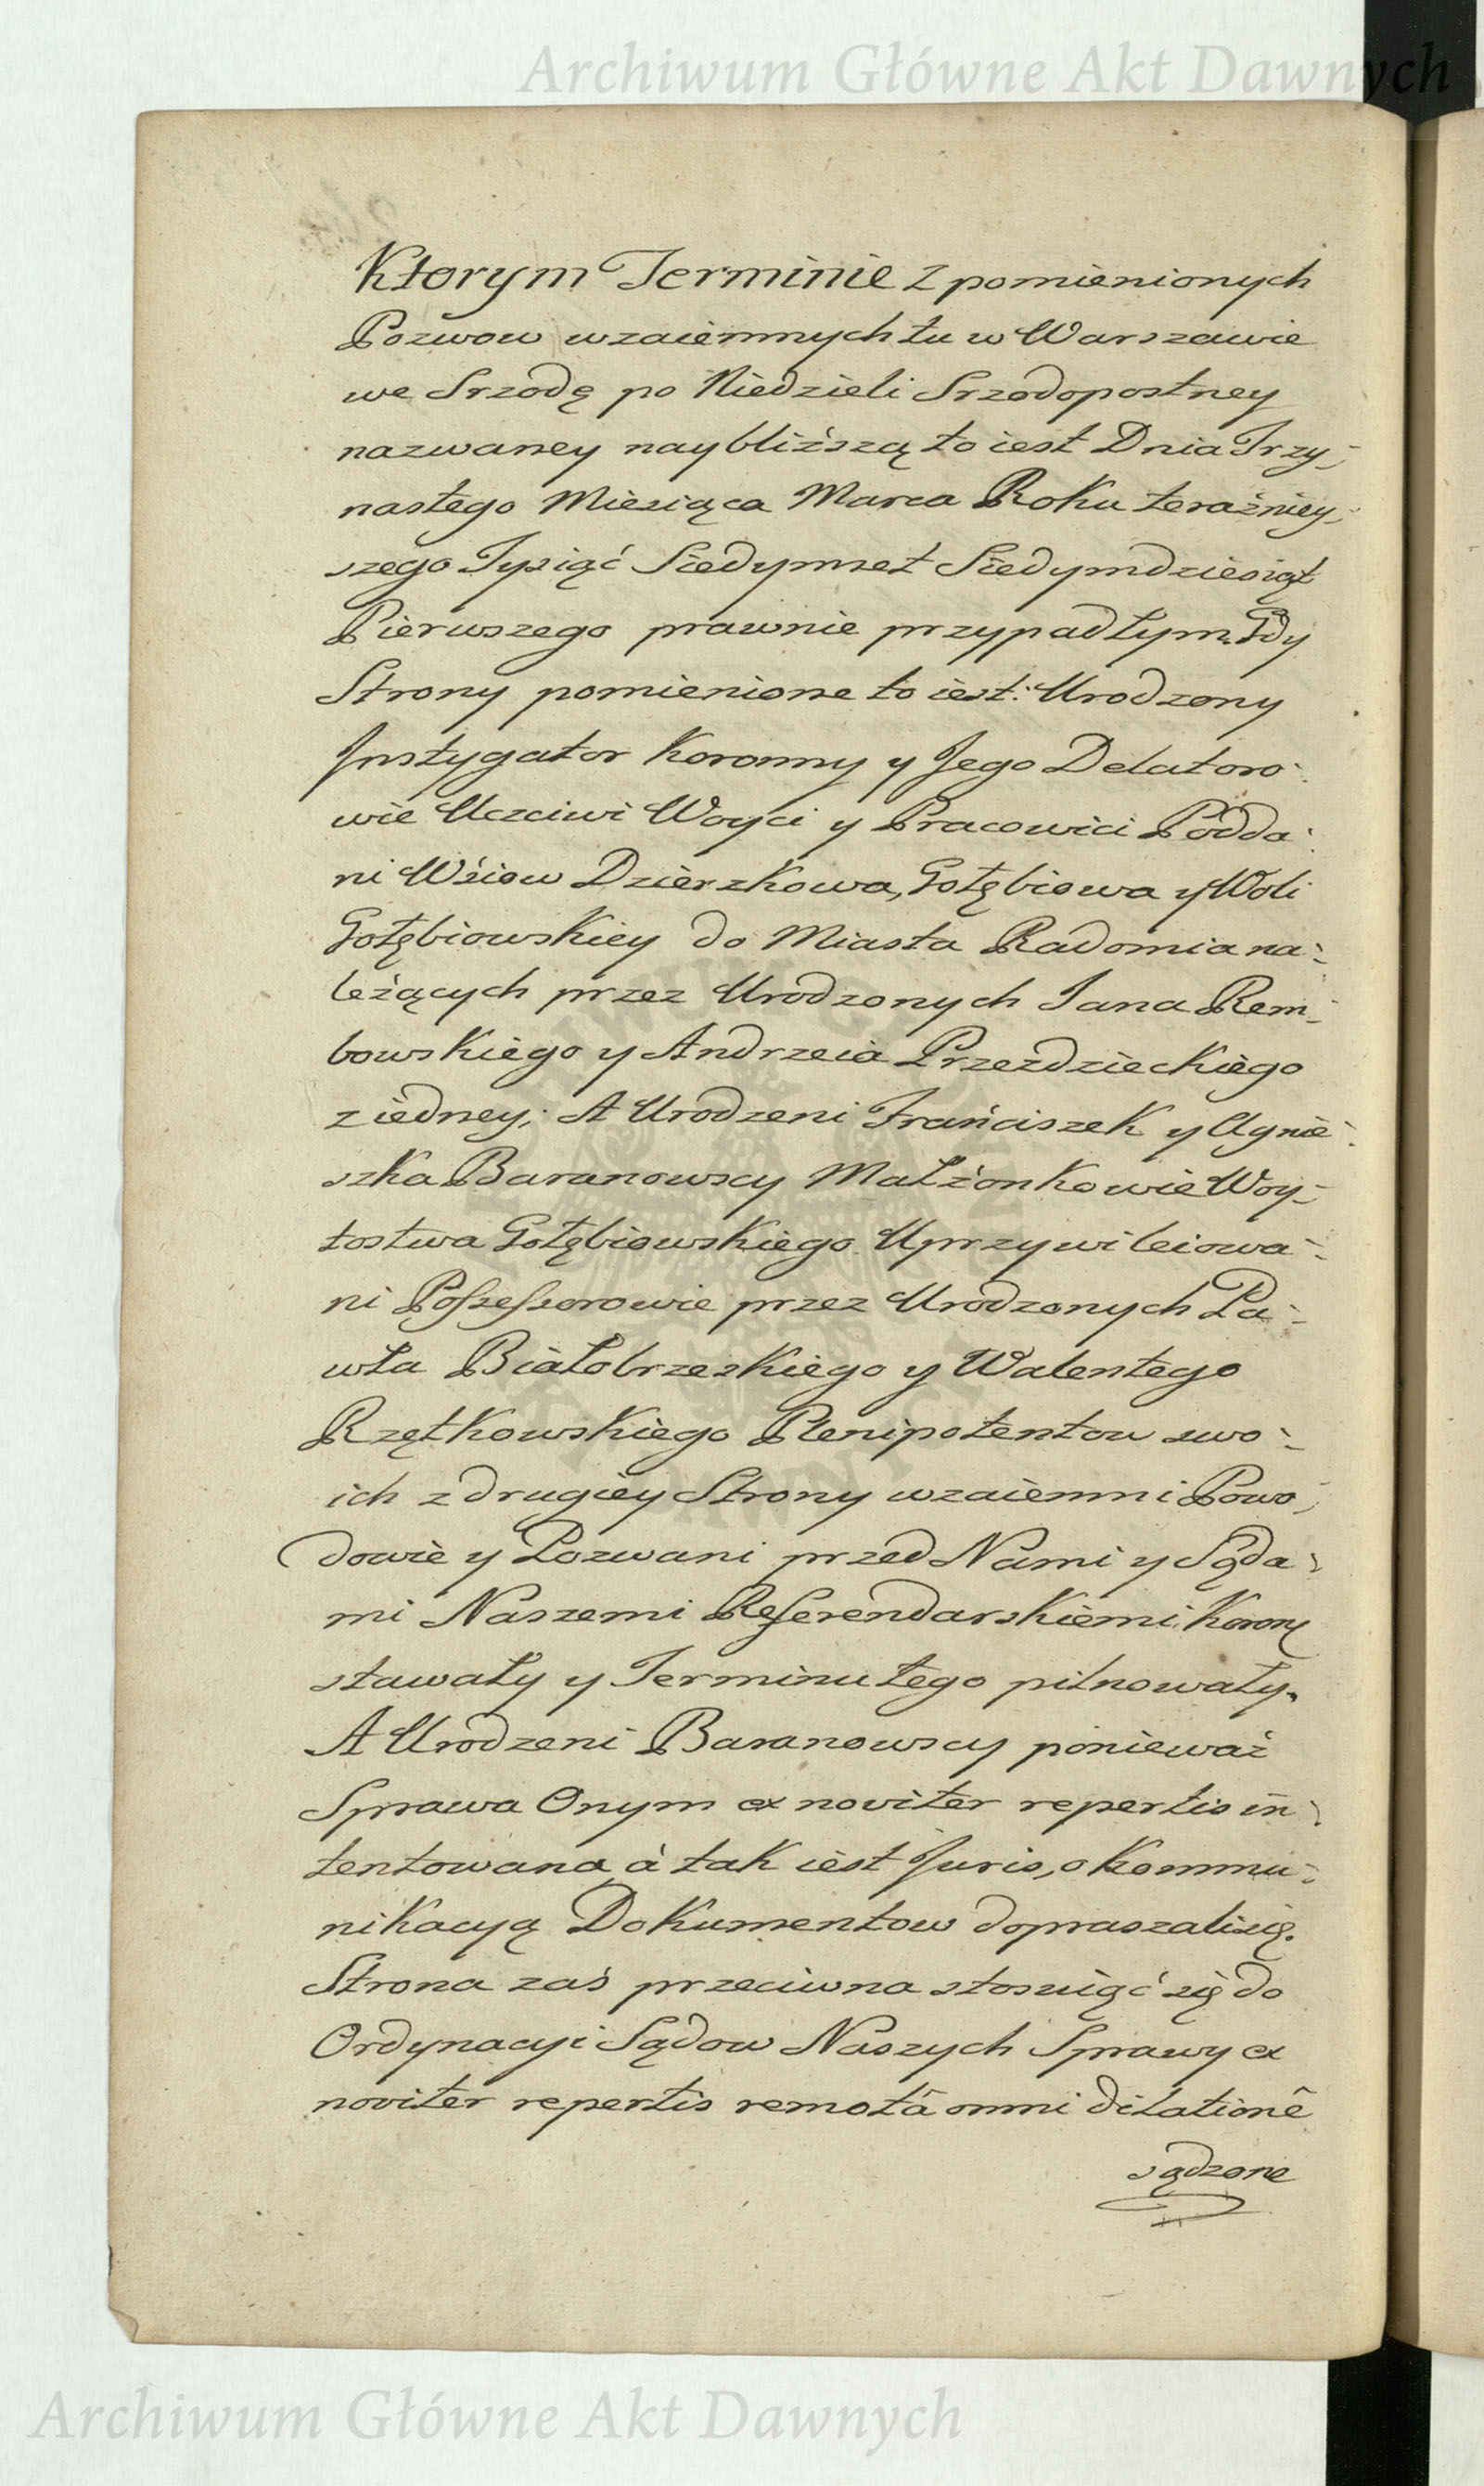 Archiwum Główne Akt Dawnych
Ktorym Terminie z pomienionych
Pozwow wzaiemnych tu w Warszawie
we Srzodę po Niedzieli Srzodopostney
nazwaney naybliższą to iest Dnia Trzy-
nastego Miesiąca Marca Roku teraźniey-
szego Tysiąć Siedymset Siedymdziesiąt
Pierwszego prawnie przypadłym. Gdy
Strony pomienione to iest: Urodzony
Instygator Koronny y Jego Delatoro-
wie Uczciwi Woyci y Pracowici Podda-
ni Wsiow Dzierzkowa, Gołębiowa y Woli
Gołębiowskiey do Miasta Radomia na-
leżących przez Urodzonych Jana Rem-
bowskiego y Andrzeia Przezdzieckiego
z iedney; A Urodzeni Franciszek y Agnie-
szka Baranowscy Małżonkowie Woy-
tostwa Gołębiowskiego Uprzywileiowa-
ni Possessorowie przez Urodzonych Pa-
wła Białobrzeskiego y Walentego
Rzętkowskiego Plenipotentow swo-
ich z drugiey Strony wzaiemni Powo-
dowie y Pozwani przed Nami y Sąda-
mi Naszemi Referendarskiemi Koron
stawały y Terminu tego pilnowały.
A Urodzeni Baranowscy ponieważ
Sprawa Onym ex noviter repertis in-
tentowana à tak iest Juris, o Kommu-
nikacyą Dokumentow dopraszali się.
Strona zaś przeciwna stosuiąć się do
Ordynacyi Sądow Naszych Sprawy ex
noviter repertis remotâ omni dilationê
sądzone
Archiwum Główne Akt Dawnych